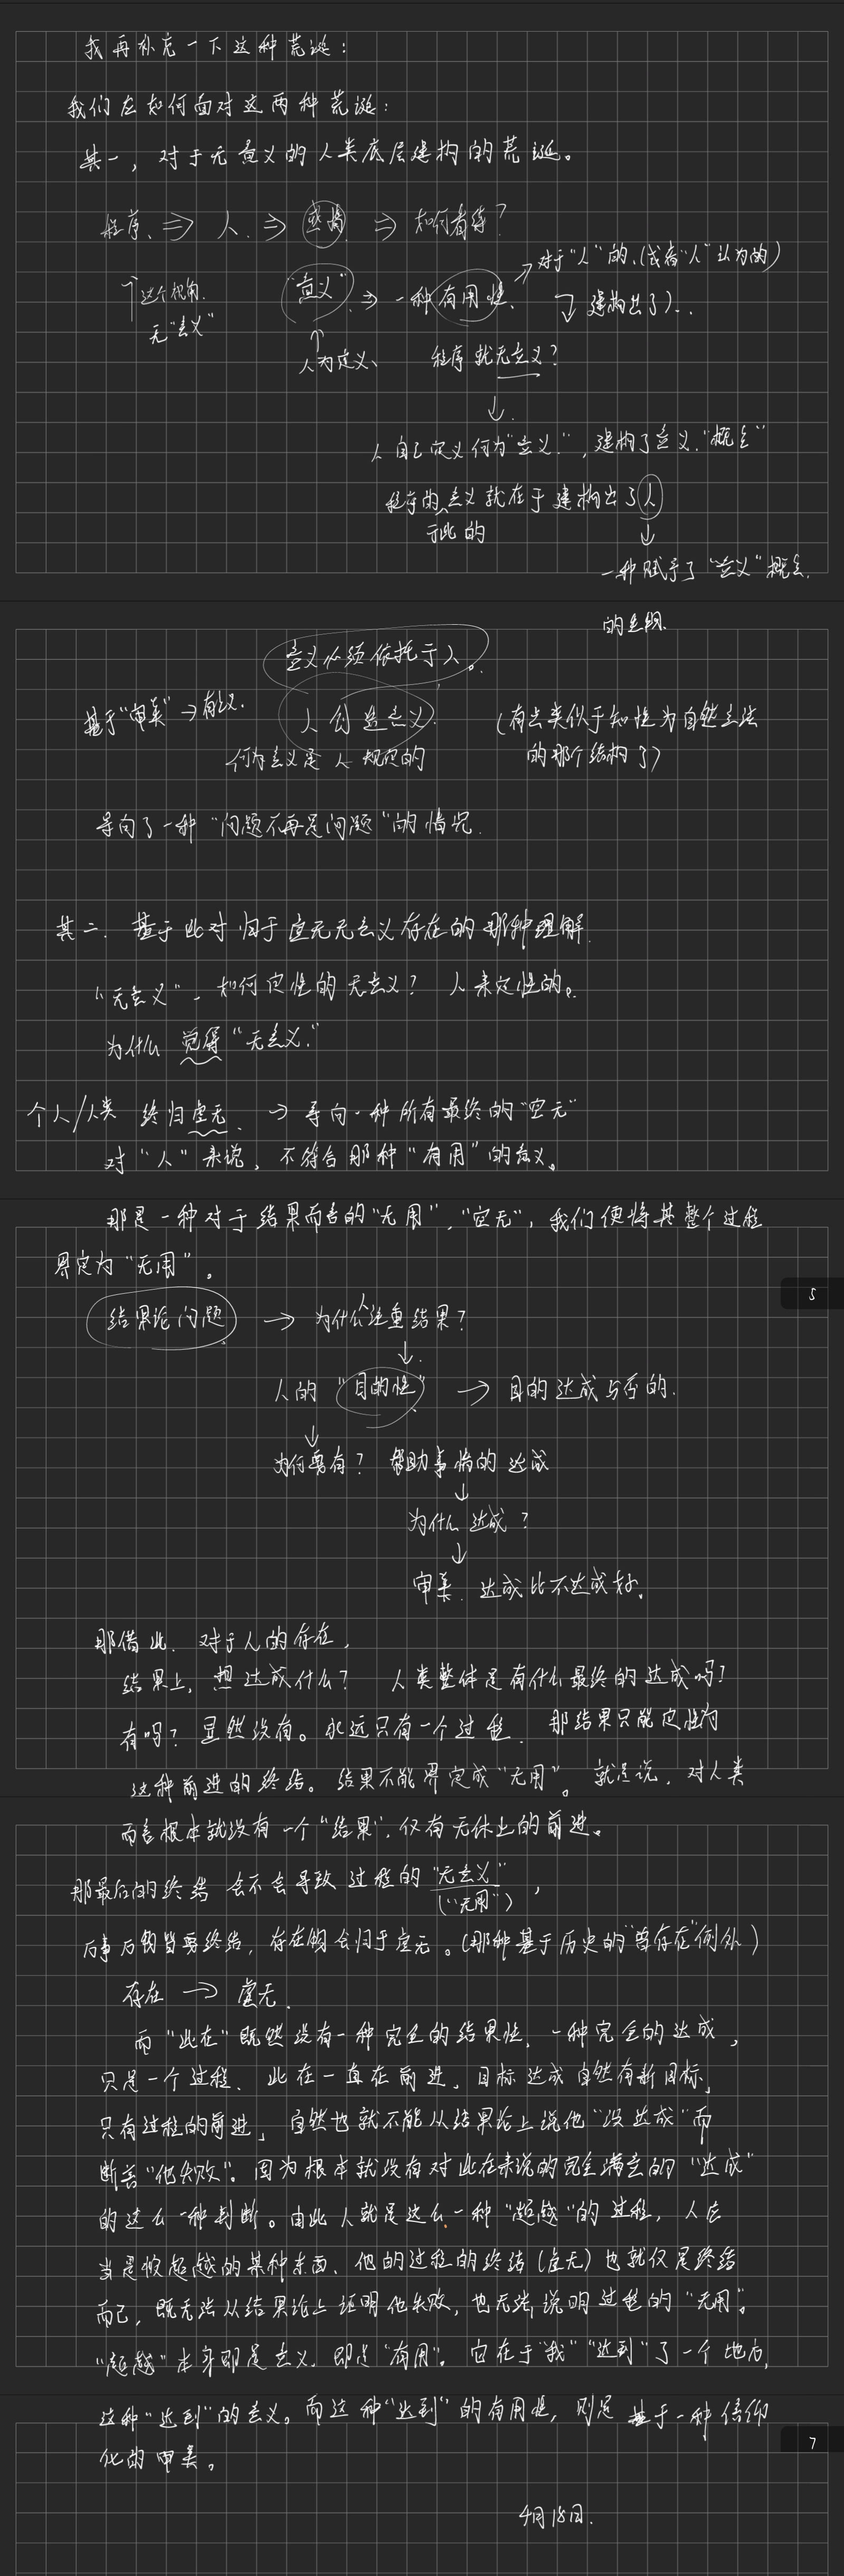 我再补充一下这种荒诞：
我们应如何面对这两种荒诞：
其一，对于无意义的人类底层建构的荒诞。
程序、⇒ 人、⇒ ⇒ 如何看待？
↑这个视角、
无“意义”
“意义” ⇒ 一种有用性、
↗对于“人”的、(或者“人”认为的)
↴ 建构出了)...
↑
人为定义、
程序就无意义？
↓
人自己定义何为“意义”，建构了意义“概念”
程序的意义就在于建构出了人
于此的
↓
一种赋予了“意义”概念
的生物、
意义必须依托于人。
基于“审美”→有意义.
人创造意义.
(有点类似于知性为自然立法
的那个结构了)
何为意义是人规定的
导向了一种“问题不再是问题”的情况.
其二、基于此对归于虚无无意义存在的那种理解.
“无意义”、如何定性的无意义？ 人来定性的。
为什么觉得“无意义”
个人/人类 终归虚无、→ 导向一种所有最终的“空无”
对“人”来说，不符合那种“有用”的意义。
那是一种对于结果而言的“无用”，“空无”，我们便将其整个过程
界定为“无用”。
5
结果论问题 → 为什么人注重结果？
↓
人的“目的性” → 目的达成与否的.
↓
为何要有？ 帮助事情的达成
↓
为什么达成？
↓
审美、达成比不达成好.
那借此、对于人的存在，
结果上，想达成什么？ 人类整体是有什么最终的达成吗？
有吗？显然没有。永远只有一个过程、那结果只能定性为
这种前进的终结。结果不能界定成“无用”。就是说，对人类
而言根本就没有一个“结果”，仅有无休止的前进。
那最后的终结会不会导致过程的“无意义”，
(“无用”)
万事万物皆要终结，存在物会归于虚无。(那种基于历史的“曾存在”例外)
存在 → 虚无.
而“此在”既然没有一种完全的结果性、一种完全的达成，
只是一个过程、此在一直在前进，目标达成自然有新目标，
只有过程的前进，自然也就不能从结果论上说他“没达成”而
断言“他失败”。因为根本就没有对此在来说的完全满意的“达成”
的这么一种判断。由此人就是这么一种“超越”的过程，人应
当是被超越的某种东西、他的过程的终结(虚无)也就仅是终结
而已，既无法从结果论上证明他失败，也无法说明过程的“无用”。
“超越”本身即是意义、即是“有用”。它在于“我”“达到”了一个地方，
这种“达到”的意义。而这种“达到”的有用性，则是基于一种信仰
化的审美。
7
4月18日.